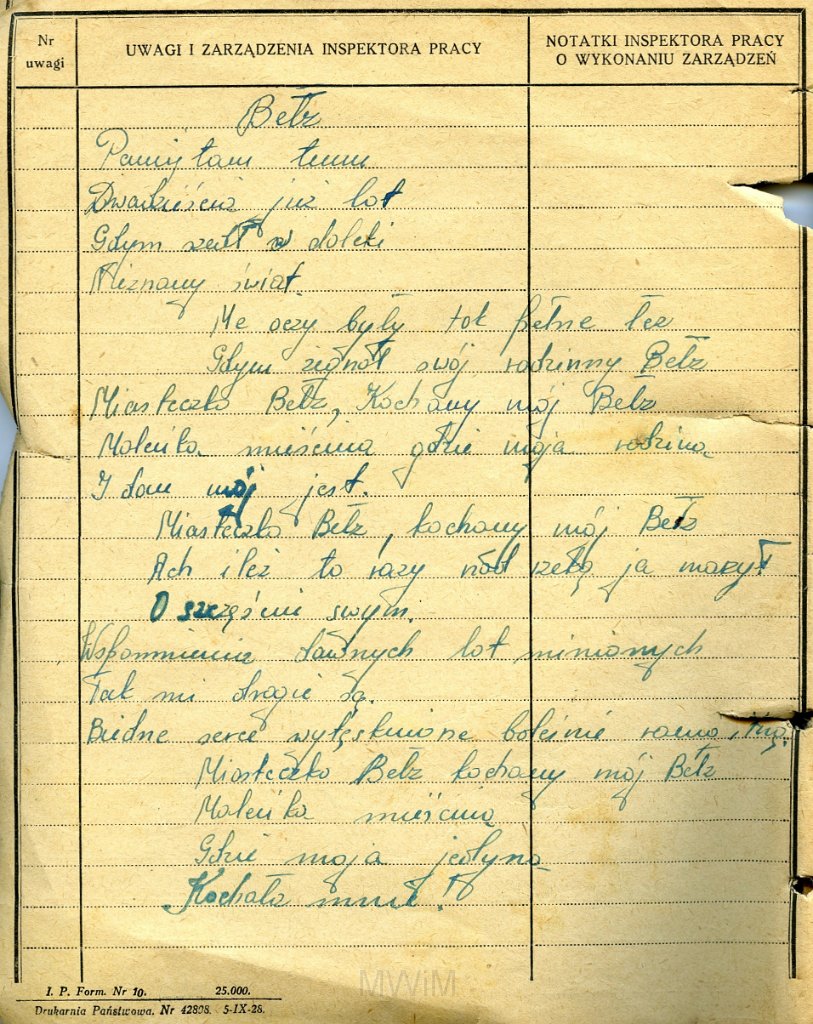 Nr uwagi
UWAGI I ZARZĄDZENIA INSPEKTORA PRACY
NOTATKI INSPEKTORA PRACY
O WYKONANIU ZARZĄDZEŃ
Bełz
Pamiętam temu
Dwadzieścia już lat
Gdym szedł w daleki
Nieznany świat.
Me oczy były tak pełne łez
Gdym żegnał swój rodzinny Bełz
Miasteczko Bełz, Kochany mój Bełz
Maleńka mieścina gdzie moja rodzina
I dom mój jest.
Miasteczko Bełz, kochany mój Bełz
Ach ileż to razy nad rzeką ja marzył
O szczęściu swym.
Wspomnienia dawnych lat minionych
Tak mi drogie są.
Biedne serce wytęsknione boleśnie
Miasteczko Bełz kochany mój Bełz
Maleńka mieścina
Gdzie moja jedyna
Kochała mnie!
MWiM
I. P. Form. Nr 10. 25.000.
Drukarnia Państwowa. Nr 42898. 5-IX-28.